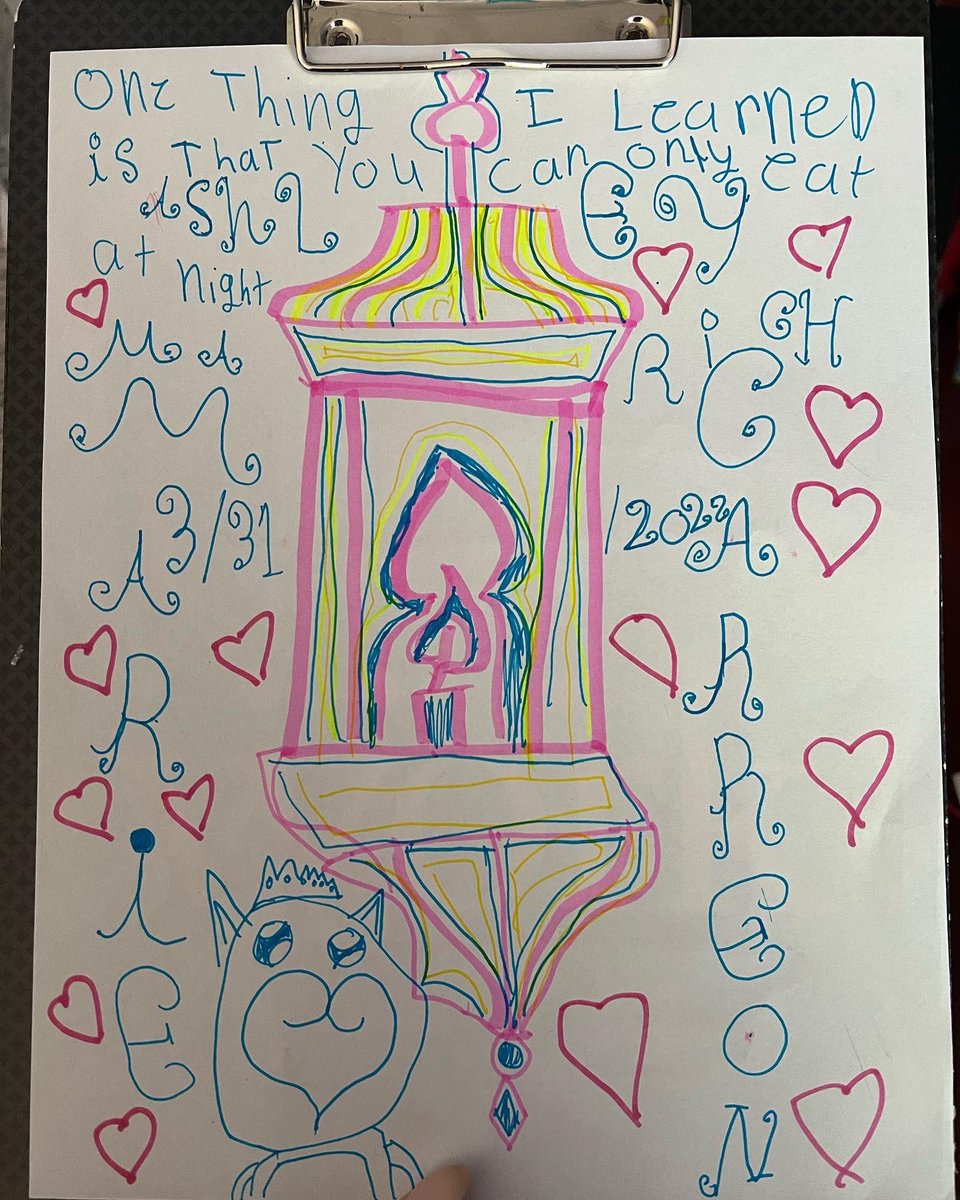 One Thing I Learned
is That You can only eat
ASHLEY
at night
MA RiCH
M C
3/31/2022
A A
R R
i R
E E
O
N